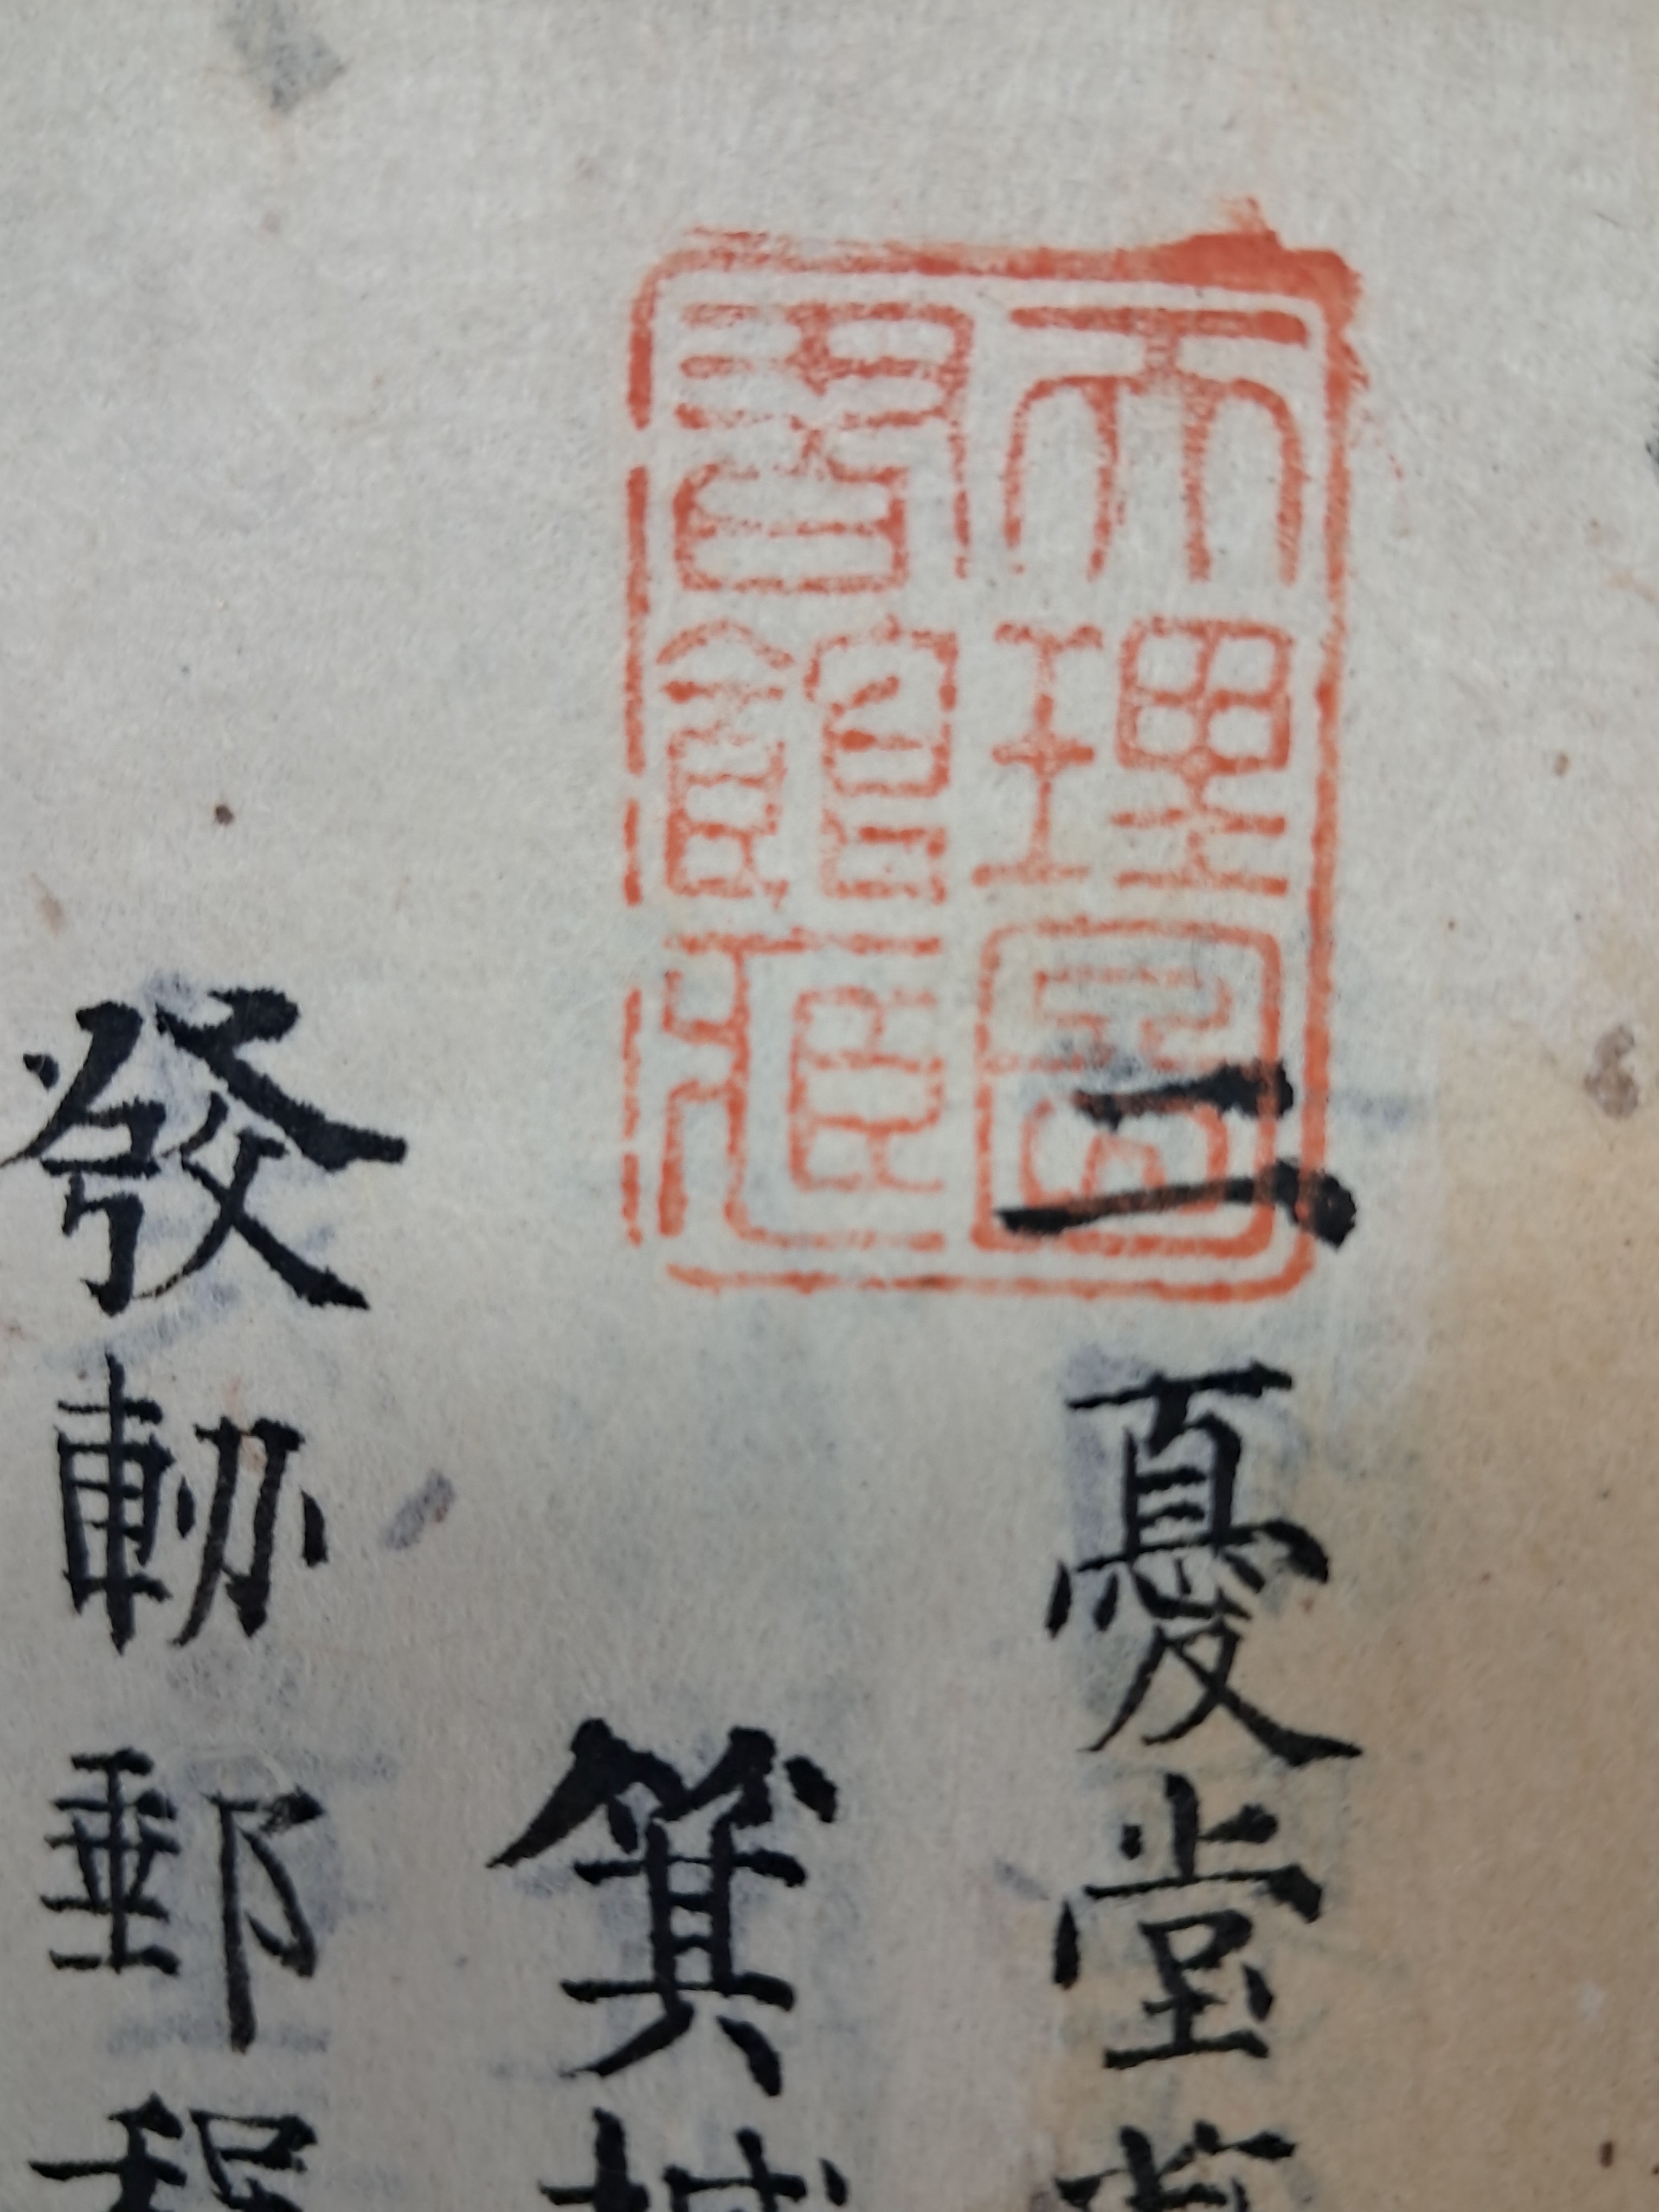 天理圖
書館藏
二憂堂
箕城
發軔郵程